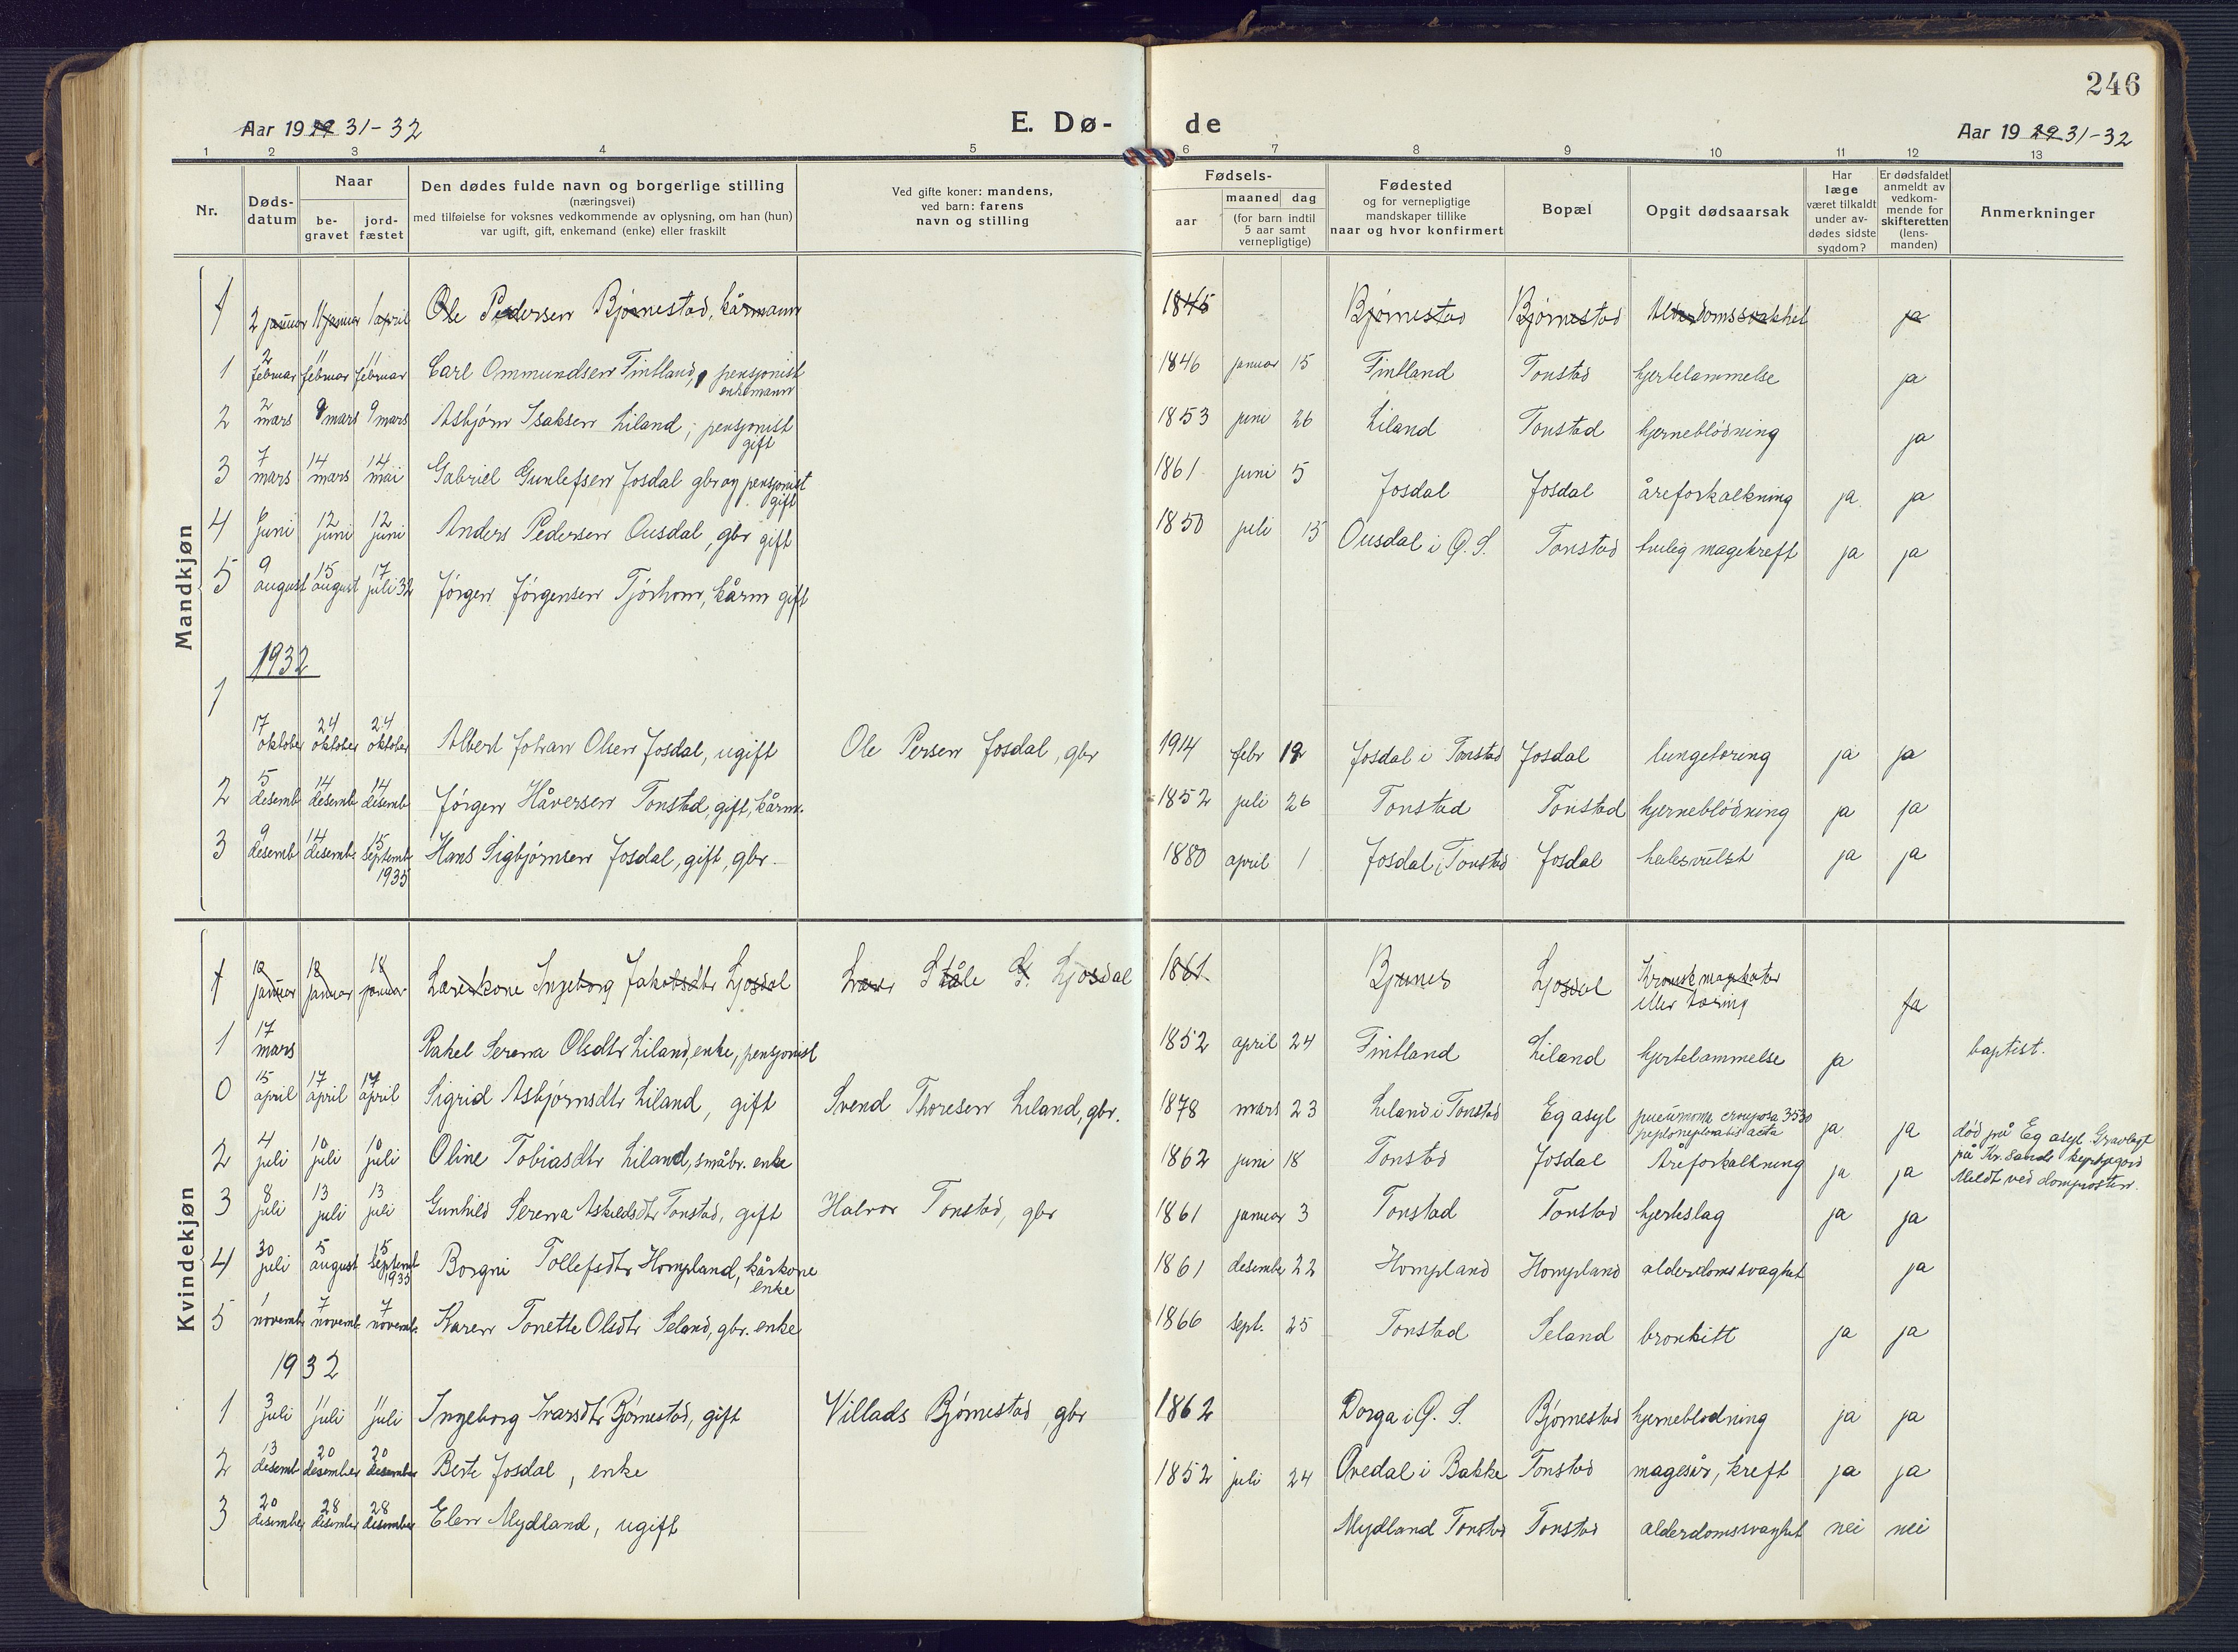 246
Aar 19 29 31-32
E. Dø-
de
Aar 19 29 31-32
1 2 3 4 5 6 7 8 9 10 11 12 13
Nr.
Døds-
datum
Naar
be-
gravet
jord-
fæstet
Den dødes fulde navn og borgerlige stilling
(næringsvei)
med tilføielse for voksnes vedkommende av oplysning, om han (hun)
var ugift, gift, enkemand (enke) eller fraskilt
Ved gifte koner: mandens,
ved barn: farens
navn og stilling
Fødsels-
aar
maaned dag
(for barn indtil
5 aar samt
vernepligtige)
Fødested
og for vernepligtige
mandskaper tillike
naar og hvor konfirmert
Bopæl
Opgit dødsaarsak
Har
læge
været tilkaldt
under av-
dødes sidste
sygdom?
Er dødsfaldet
anmeldt av
vedkom-
mende for
skifteretten
(lens-
manden)
Anmerkninger
Mandkjøn
1 2 januar 11 januar 1 april Ole Pedersen Bjørnestad, kårmann 1845 Bjørnestad Bjørnestad Alderdomssvakhet ja
1 2 februar 11 februar 11 februar Carl Ommundsen Fintland, pensjonist enkemann 1846 januar 15 Fintland Tonstad hjertelammelse ja
2 2 mars 9 mars 9 mars Asbjørn Isaksen Liland, pensjonist gift 1853 juni 26 Liland Tonstad hjerneblødning ja
3 7 mars 14 mars 14 mai Gabriel Gunlefsen Josdal gbr og pensjonist gift 1861 juni 5 Josdal Josdal åreforkalkning ja ja
4 6 juni 12 juni 12 juni Anders Pedersen Ousdal, gbr gift 1850 juli 15 Ousdal i Ø. S. Tonstad trulig magekreft ja ja
5 9 august 15 august 17 juli 32 Jørgen Jørgensen Tjørhom, kårm gift
1932
1 17 oktober 24 oktober 24 oktober Albert Johan Olsen Josdal, ugift Ole Persen Josdal, gbr 1914 febr 12 Josdal i Tonstad Josdal lungetæring ja ja
2 5 desemb 14 desemb 14 desemb Jørgen Håversen Tonstad, gift, kårm. 1852 juli 26 Tonstad Tonstad hjerneblødning ja ja
3 9 desemb 14 desemb 15 septemb 1935 Hans Sigbjørnsen Josdal, gift, gbr. 1880 april 1 Josdal i Tonstad Josdal halssvulst ja ja
Kvindekjøn
1 januar 18 januar 18 januar Ingeborg Jakobsdtr Ljosdal Ståle Ljosdal 1861 Bjunes Ljosdal Kronisk magekatar eller tæring ja
1 17 mars Rakel Serena Olsdtr Liland, enke, pensjonist 1852 april 24 Fintland Liland hjertelammelse ja baptist.
0 15 april 17 april 17 april Sigrid Asbjørnsdtr Liland, gift Svend Thoresen Liland, gbr. 1878 mars 23 Liland i Tonstad Eg asyl pneumoni crouposa ja ja død på Eg asyl. Gravlagt
på Kr.sands kyrkjegard
Meldt ved domprosten.
2 4 juli 10 juli 10 juli Oline Tobiasdtr Liland, småbr. enke 1862 juni 18 Tonstad Josdal Åreforkalkning ja ja
3 8 juli 13 juli 13 juli Gunhild Serena Askildsdtr Tonstad, gift Halvor Tonstad, gbr 1861 januar 3 Tonstad Tonstad hjerteslag ja ja
4 30 juli 5 august 15 septemb 1935 Borgni Tollefsdtr Hompland, kårkone enke 1861 desembr 22 Hompland Hompland alderdomssvaghet ja
5 1 novemb 7 novemb. 7 novemb. Karen Tonette Olsdtr Seland, gbr. enke 1866 sept. 25 Tonstad Seland bronkitt ja ja
1932
1 3 juli 11 juli 11 juli Ingeborg Ivarsdtr Bjørnestad, gift Villads Bjørnestad, gbr 1862 Dorga i Ø. S. Bjørnestad hjerneblodning ja ja
2 13 desemb 20 desember 20 desember Berte Josdal, enke 1852 juli 24 Ovedal i Bakke Tonstad magesår, kreft ja ja
3 20 desember 28 desember 28 desember Elen Mydland, ugift Mydland Tonstad Tonstad alderdomssvaghet nei nei